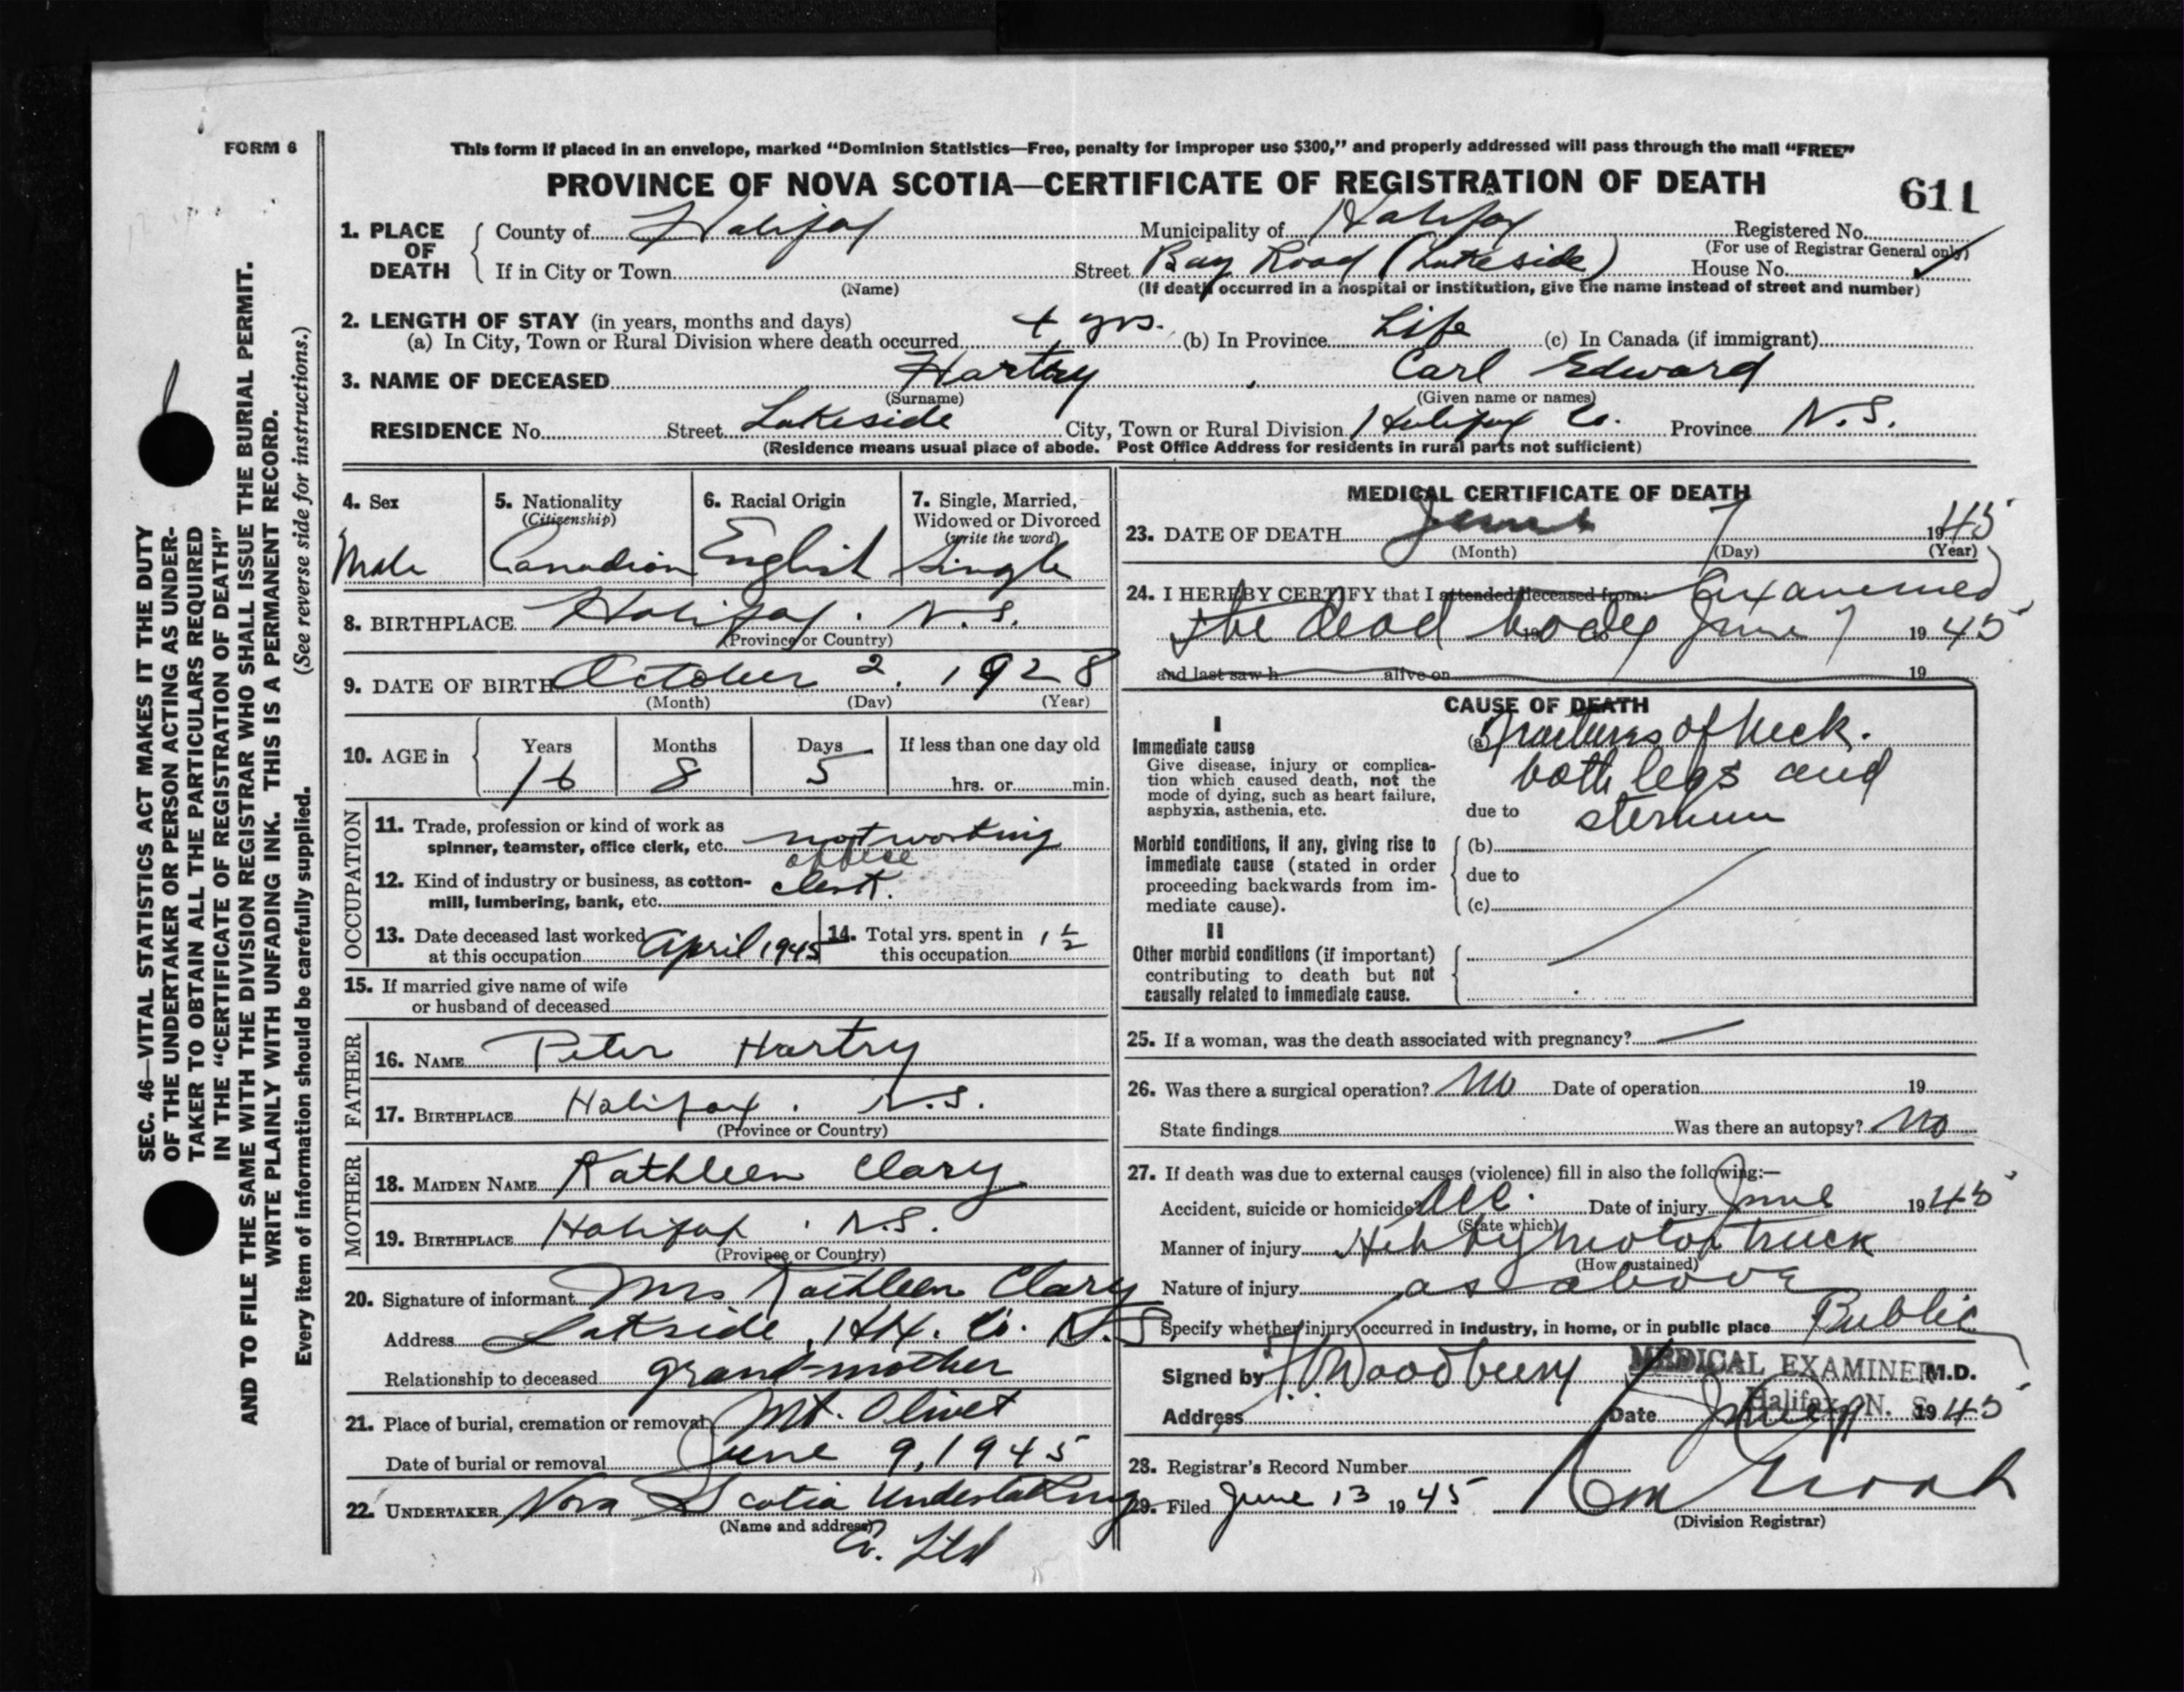 FORM 6
This form if placed in an envelope, marked “Dominion Statistics—Free, penalty for improper use $300,” and properly addressed will pass through the mail “FREE”
PROVINCE OF NOVA SCOTIA—CERTIFICATE OF REGISTRATION OF DEATH
611
SEC. 46—VITAL STATISTICS ACT MAKES IT THE DUTY
OF THE UNDERTAKER OR PERSON ACTING AS UNDER-
TAKER TO OBTAIN ALL THE PARTICULARS REQUIRED
IN THE “CERTIFICATE OF REGISTRATION OF DEATH”
AND TO FILE THE SAME WITH THE DIVISION REGISTRAR WHO SHALL ISSUE THE BURIAL PERMIT.
WRITE PLAINLY WITH UNFADING INK. THIS IS A PERMANENT RECORD.
Every item of information should be carefully supplied. (See reverse side for instructions.)
1. PLACE OF DEATH
County of Halifax Municipality of Halifax Registered No.
(For use of Registrar General only)
If in City or Town Street Bay Road (Lakeside) House No.
(Name) (If death occurred in a hospital or institution, give the name instead of street and number)
2. LENGTH OF STAY (in years, months and days)
(a) In City, Town or Rural Division where death occurred 4 yrs. (b) In Province Life (c) In Canada (if immigrant)
3. NAME OF DECEASED Hartry, Carl Edward
(Surname) (Given name or names)
RESIDENCE No. Street Lakeside City, Town or Rural Division Halifax Co. Province N.S.
(Residence means usual place of abode. Post Office Address for residents in rural parts not sufficient)
4. Sex
Male
5. Nationality
(Citizenship)
Canadian
6. Racial Origin
English
7. Single, Married,
Widowed or Divorced
(write the word)
Single
8. BIRTHPLACE Halifax. N.S.
(Province or Country)
9. DATE OF BIRTH October 2. 1928
(Month) (Day) (Year)
10. AGE in
Years Months Days If less than one day old
16 8 5 hrs. or min.
OCCUPATION
11. Trade, profession or kind of work as
spinner, teamster, office clerk, etc. not working
office
12. Kind of industry or business, as cotton-
mill, lumbering, bank, etc. clerk.
13. Date deceased last worked
at this occupation April 1945
14. Total yrs. spent in
this occupation 1½
15. If married give name of wife
or husband of deceased
FATHER
16. NAME Peter Hartry
17. BIRTHPLACE Halifax. N.S.
(Province or Country)
MOTHER
18. MAIDEN NAME Kathleen Clary
19. BIRTHPLACE Halifax. N.S.
(Province or Country)
20. Signature of informant Mrs Kathleen Clary
Address Lakeside, Hfx. Co. N.S
Relationship to deceased grand-mother
21. Place of burial, cremation or removal Mt. Olivet
Date of burial or removal June 9, 1945
22. UNDERTAKER Nova Scotia Undertaking
(Name and address)
Co. Ltd
MEDICAL CERTIFICATE OF DEATH
23. DATE OF DEATH June 7 1945
(Month) (Day) (Year)
24. I HEREBY CERTIFY that I attended deceased from: Examined
the dead body June 7 1945
and last saw h alive on 19
CAUSE OF DEATH
I
Immediate cause
Give disease, injury or complica-
tion which caused death, not the
mode of dying, such as heart failure,
asphyxia, asthenia, etc.
(a) Fractures of neck.
both legs and
due to sternum
Morbid conditions, if any, giving rise to
immediate cause (stated in order
proceeding backwards from im-
mediate cause).
(b)
due to
(c)
II
Other morbid conditions (if important)
contributing to death but not
causally related to immediate cause.
25. If a woman, was the death associated with pregnancy?
26. Was there a surgical operation? No Date of operation 19
State findings Was there an autopsy? No
27. If death was due to external causes (violence) fill in also the following:—
Accident, suicide or homicide? Acc. Date of injury June 1945
(State which)
Manner of injury Hit by motor truck
(How sustained)
Nature of injury as above
Specify whether injury occurred in industry, in home, or in public place Public
Signed by Woodbury MEDICAL EXAMINER M.D.
Halifax, N. S.
Address Date June 9 1945
28. Registrar's Record Number
29. Filed June 13 1945
(Division Registrar)